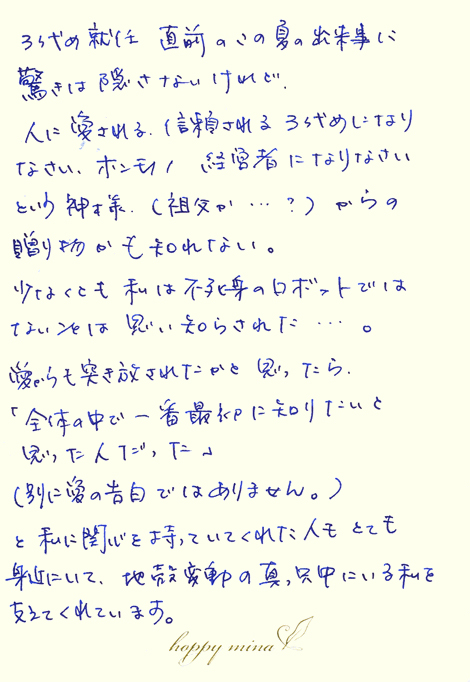 3代め就任 直前のこの夏の出来事に
驚きは隠さないけれど.
人に愛される. 信頼される 3代めになり
なさい. ホンモノ 経営者になりなさい
という神様. (祖父か…?) からの
贈り物かも知れない。
少なくとも 私は不死身のロボットでは
ないことは 思い知らされた …。
愛からも突き放されたかと 思ったら.
「全体の中で一番最初に知りたいと
思った人だった」
(別に愛の告白ではありません。)
と 私に関心を持っていてくれた人も とても
身近にいて、地殻変動の真只中にいる私を
支えてくれています。
happy mina